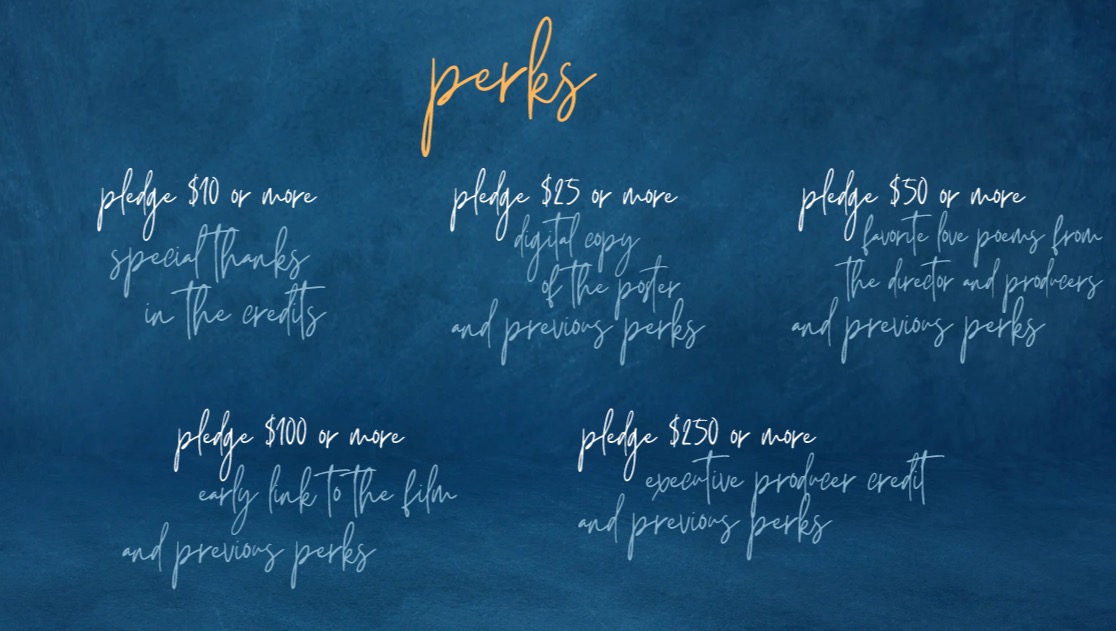 perks
pledge $10 or more
special thanks
in the credits
pledge $25 or more
digital copy
of the poster
and previous perks
pledge $50 or more
favorite love poems from
the director and producers
and previous perks
pledge $100 or more
early link to the film
and previous perks
pledge $250 or more
executive producer credit
and previous perks